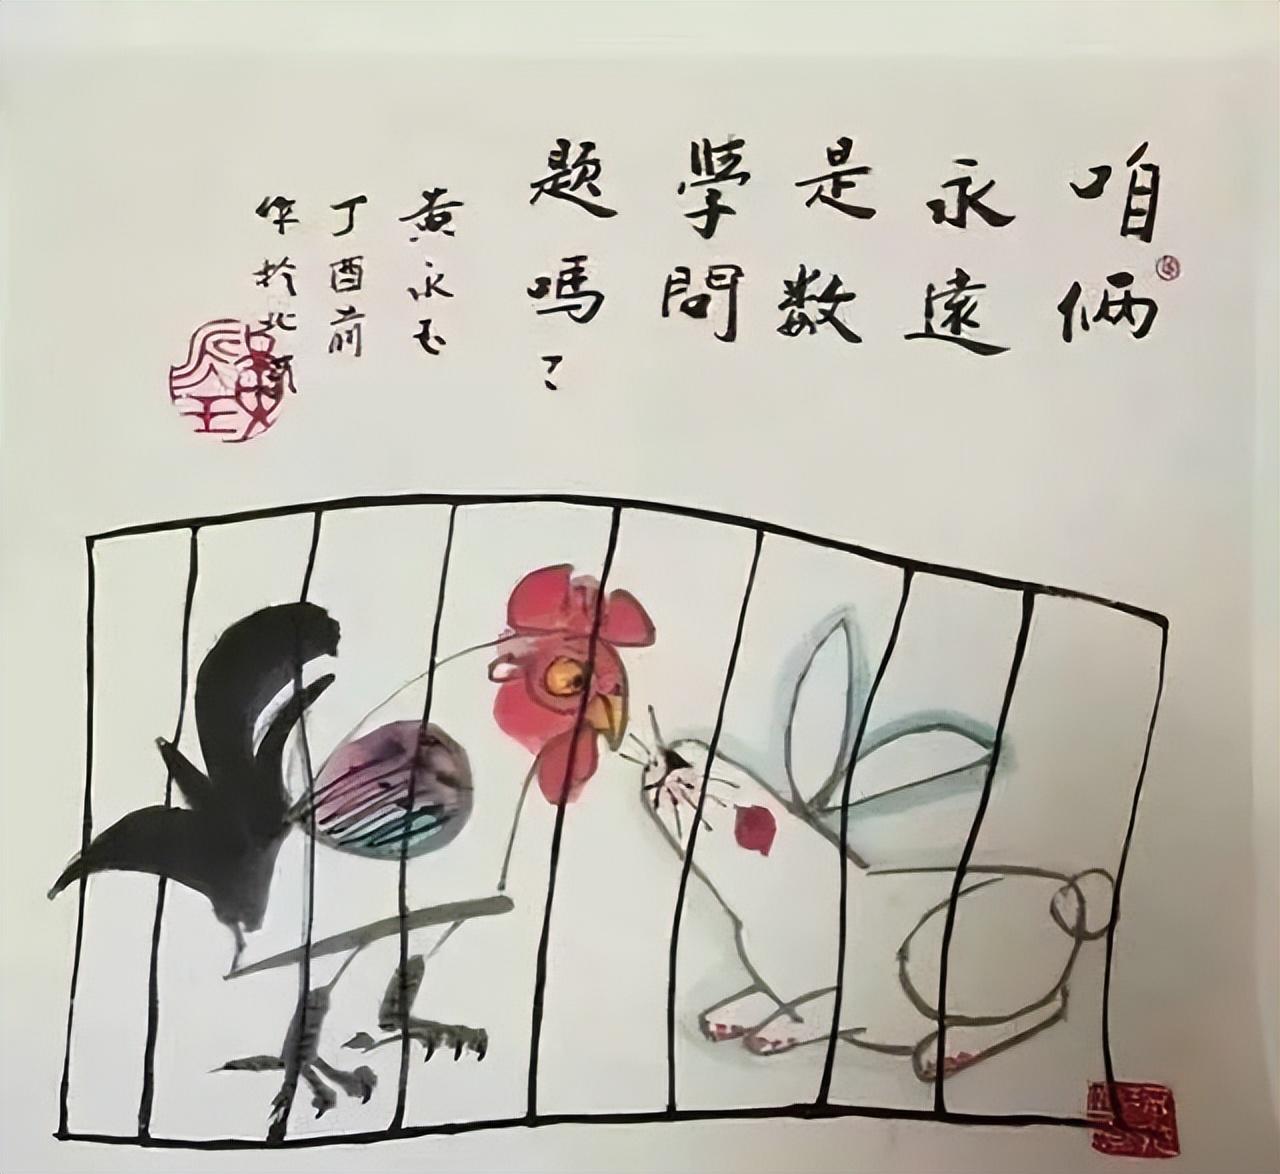 咱俩
永遠
是数
學問
题嗎？
黄永玉
丁酉前
作於北京